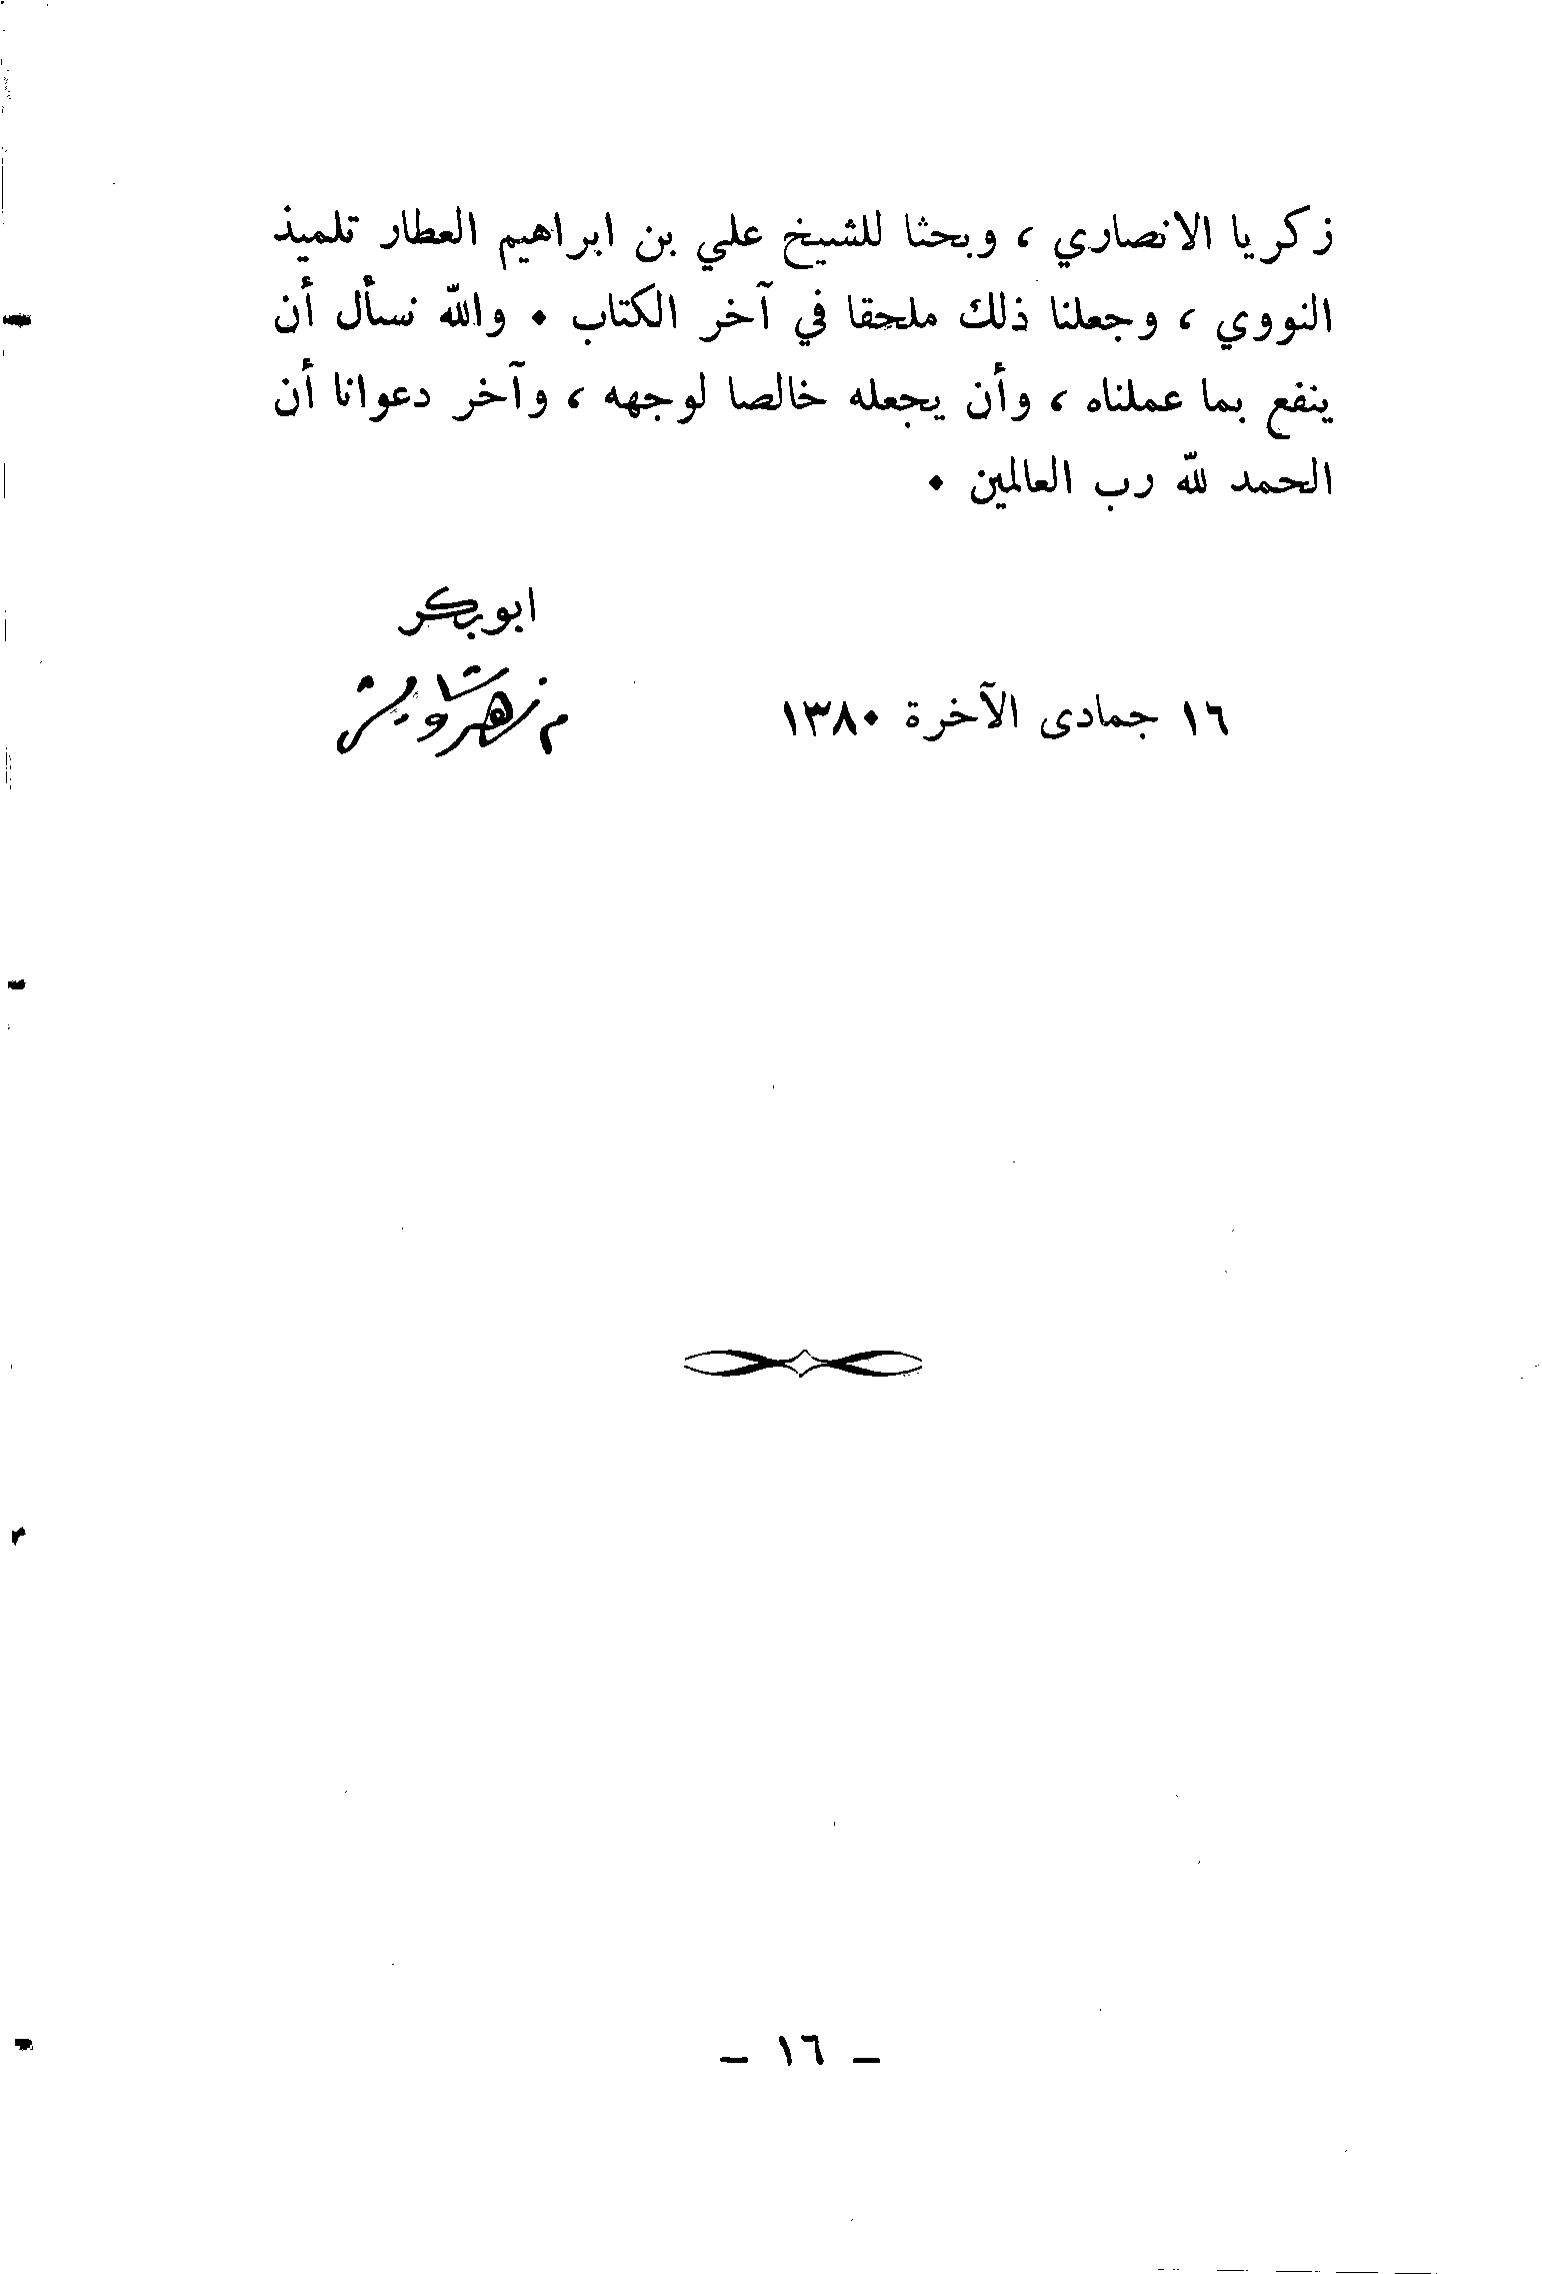 زكريا الانصاري ، وبحثا للشيخ علي بن ابراهيم العطار تلميذ
النووي ، وجعلنا ذلك ملحقا في آخر الكتاب . والله نسأل أن
ينفع بما عملناه ، وأن يجعله خالصا لوجهه ، وآخر دعوانا أن
الحمد لله رب العالمين .
ابو بكر
م زهير شاويش
١٦ جمادى الآخرة ١٣٨٠
– ١٦ –